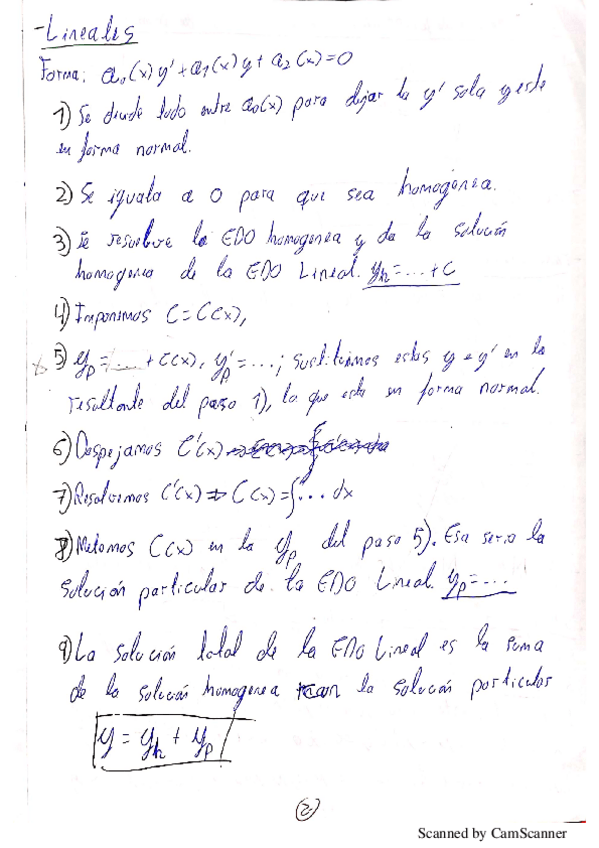 - Lineales
Forma: a₀(x)y' + a₁(x)y + a₂(x) = 0
1) Se divide todo entre a₀(x) para dejar la y' sola y este
en forma normal.
2) Se iguala a 0 para que sea homogenea.
3) Se resuelve la EDO homogenea y da la solución
homogenea de la EDO Lineal. yh = ... + C
4) Imponemos C = C(x),
5) yp = ... + C(x), y'p = ...; sustituimos estas y e y' en la
resultante del paso 1), la que este en forma normal.
6) Despejamos C'(x)
7) Resolvemos C'(x) ⇒ C(x) = ∫ ... dx
8) Metemos C(x) en la yp del paso 5). Esa seria la
solución particular de la EDO Lineal. yp = ...
9) La solución total de la EDO Lineal es la suma
de la solución homogenea con la solución particular
y = yh + yp
2
Scanned by CamScanner